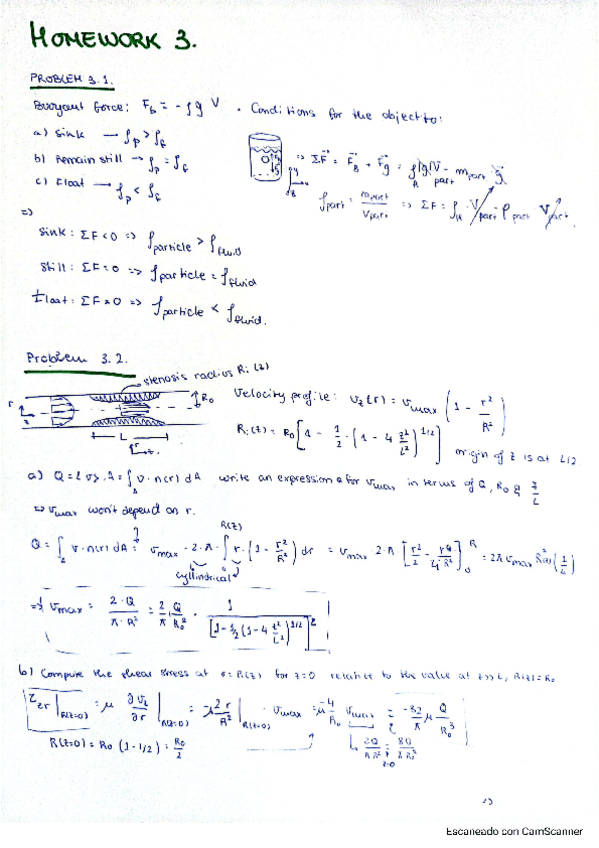 HOMEWORK 3.
PROBLEM 3.1.
Buoyant force: F_b = -ρg V . Conditions for the object to:
a) sink → ρ_p > ρ_f
b) Remain still → ρ_p = ρ_f
c) Float → ρ_p < ρ_f
⇒ ΣF = F_B + F_g = ρ_fl g V_part - m_part g
ρ_part = m_part / V_part ⇒ ΣF = ρ_fl · V_part - ρ_part V_part.
⇒
Sink: ΣF < 0 ⇒ ρ_particle > ρ_fluid
Still: ΣF = 0 ⇒ ρ_particle = ρ_fluid
Float: ΣF > 0 ⇒ ρ_particle < ρ_fluid.
Problem 3.2.
stenosis radius R_i(z)
r
z
R_0
L
r
z.
Velocity profile: v_z(r) = v_max (1 - r²/R²)
R_i(z) = R_0 [1 - 1/2 · (1 - 4 z²/L²)^1/2] origin of z is at L/2
a) Q = <v> · A = ∫_A v · n(r) dA write an expression for v_max in terms of Q, R_0 & z/L
⇒ v_max won't depend on r.
Q = ∫_A v · n(r) dA = v_max · 2 · π · ∫_0^R(z) r · (1 - r²/R²) dr = v_max 2 · π [r²/2 - r⁴/4R²]_0^R = 2π v_max R²(z) (1/4)
cyllindrical
⇒ v_max = 2 · Q / π · R² = 2/π Q/R_0² · 1 / [1 - 1/2 (1 - 4 z²/L²)^1/2]²
b) Compute the shear stress at r = R(z) for z=0 relative to the value at z>>L, R(z) = R_0
τ_zr |_R(z=0) = μ ∂v_z/∂r |_R(z=0) = -μ 2r/R² |_R(z=0) · v_max = -μ 4/R_0 v_max = -32/π μ Q/R_0³
R(z=0) = R_0 (1 - 1/2) = R_0/2
2Q/πR² = 8Q/πR_0²
z=0
Escaneado con CamScanner